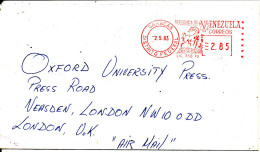 CARACAS
2.5.83
DISTRITO FEDERAL
VENEZUELA
CORREOS
2.85
OXFORD UNIVERSITY PRESS.
PRESS ROAD
NEASDEN, LONDON NW10 0DD
LONDON, U.K.
"AIR MAIL"